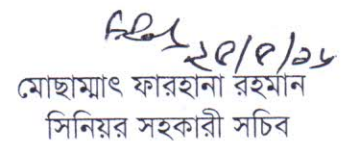 ২৫/৫/২৬
মোছাম্মাৎ ফারহানা রহমান
সিনিয়র সহকারী সচিব